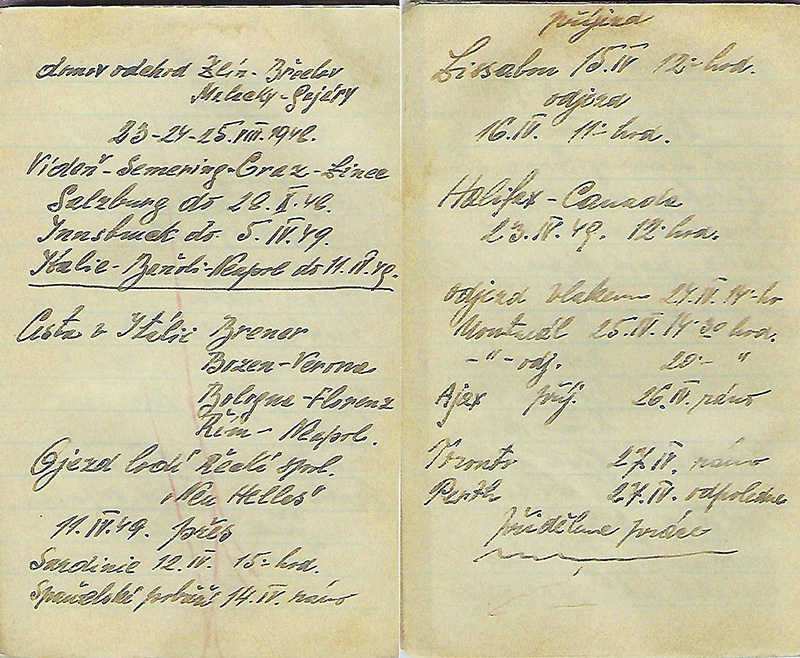 domov odchod Zlín - Břeclav
Malacky - Gejéry
23-24-25. VIII. 1948.
Vídeň - Semering - Graz - Linec
Salzburg do 28. X. 48.
Innsbruck do 5. IV. 49.
Italie - Bañoli - Neapol do 11. IV. 49.
Cesta v Itálii Brener
Bozen - Verona
Bologna - Florenz
Řím - Neapol.
Ojezd lodí Řecké spol.
"Nea Hellas"
11. IV. 49. přes
Sardinie 12. IV. 15- hod.
Španělské pobřeží 14. IV. ráno
příjezd
Lissabon 15. IV 12- hod.
odjezd
16. IV. 11- hod.
Halifax - Canada
23. IV. 49. 12- hod.
odjezd vlakem 24. IV. 14- ho
Montreál 25. IV. 14 30 hod.
-"- odj. 20- "
Ajax příj. 26. IV. ráno
Toronto 27. IV. ráno
Perth 27. IV. odpoledne
přidělení práce